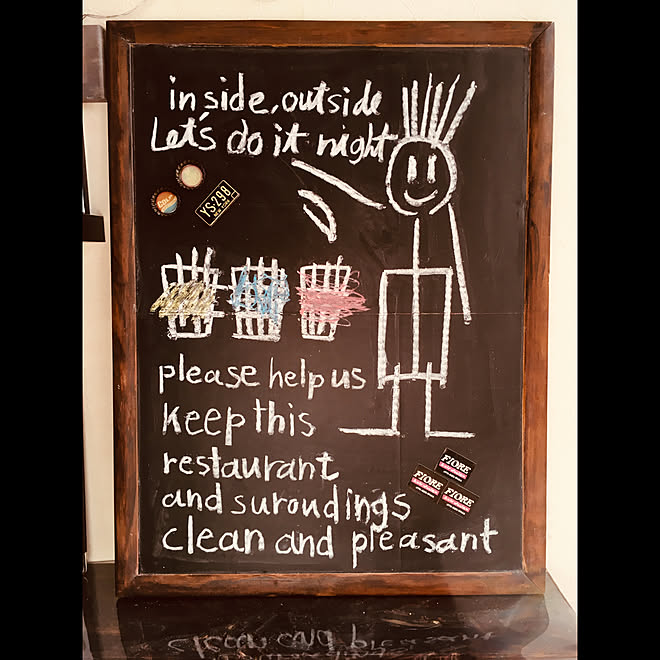 in side, outside
Let's do it night
YS·298
please help us
keep this
restaurant
and suroudings
clean and pleasant
FIORE
FIORE
FIORE